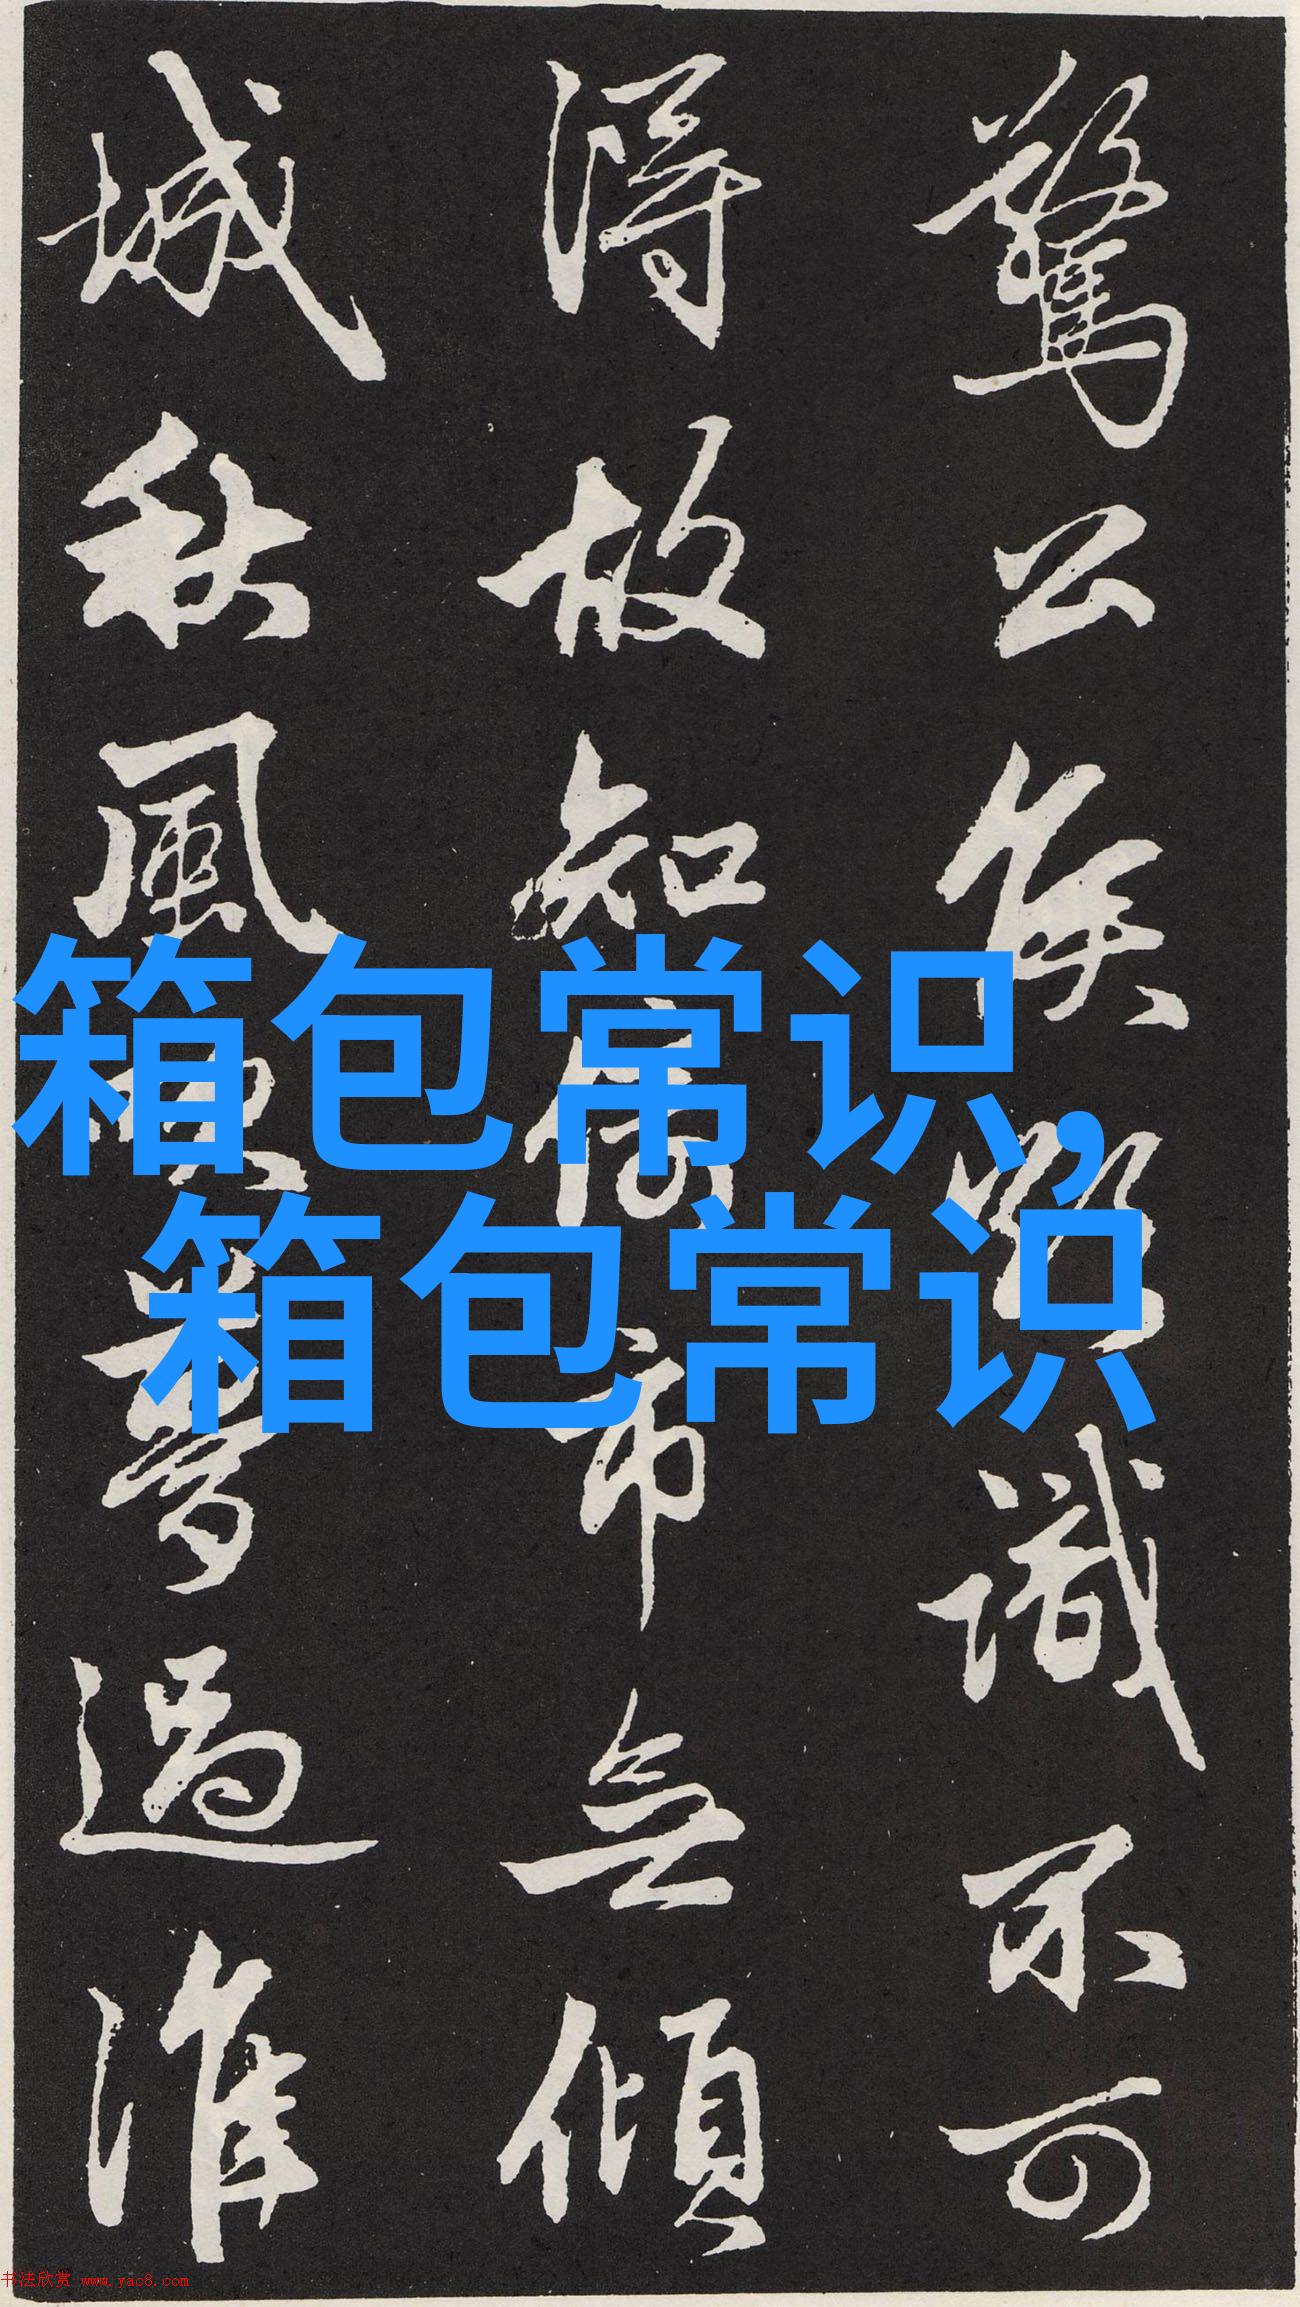 驚公侯識不可
得故知市无傾
城秋風夢過淮
箱包常识,
箱包常识
书法欣赏 www.yac8.com